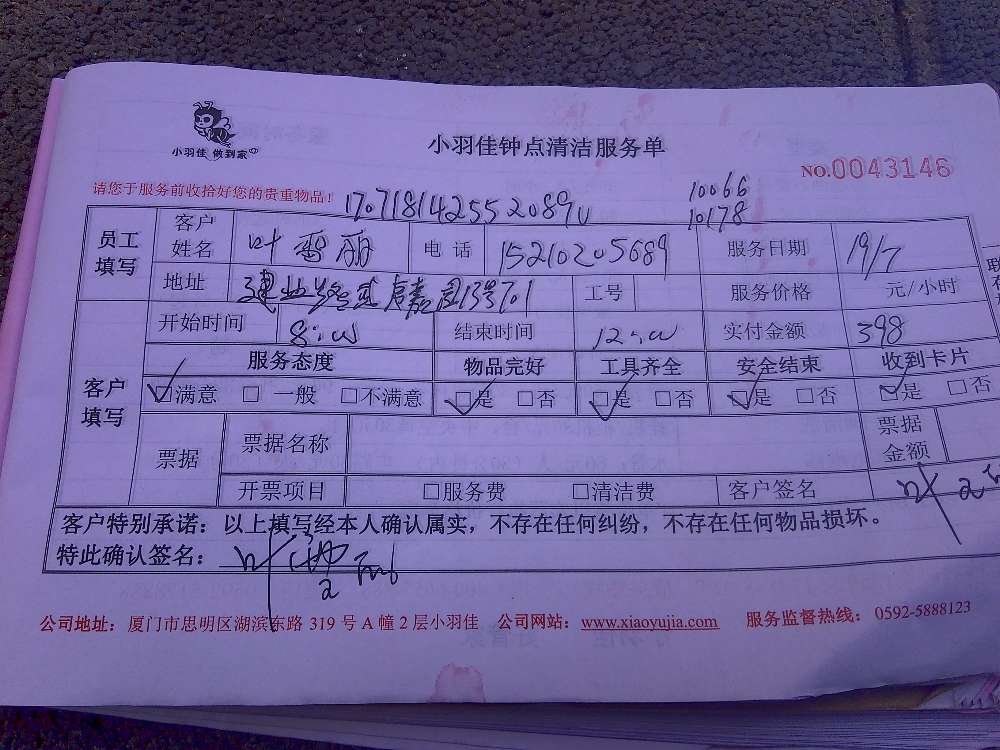 小羽佳 做到家
小羽佳钟点清洁服务单
NO.0043146
请您于服务前收拾好您的贵重物品!
10066
10178
员工填写 客户姓名 叶 丽 电话 15210205689 服务日期 19/7
地址 建业路 13号701 工号 服务价格 元/小时
客户填写 开始时间 8:00 结束时间 12:00 实付金额 398
服务态度 物品完好 工具齐全 安全结束 收到卡片
☑满意 □一般 □不满意 ☑是 □否 ☑是 □否 ☑是 □否 ☑是 □否
票据 票据名称 票据金额
开票项目 □服务费 □清洁费 客户签名
客户特别承诺:以上填写经本人确认属实,不存在任何纠纷,不存在任何物品损坏。
特此确认签名:
公司地址:厦门市思明区湖滨东路 319 号 A 幢 2 层小羽佳 公司网站:www.xiaoyujia.com 服务监督热线:0592-5888123